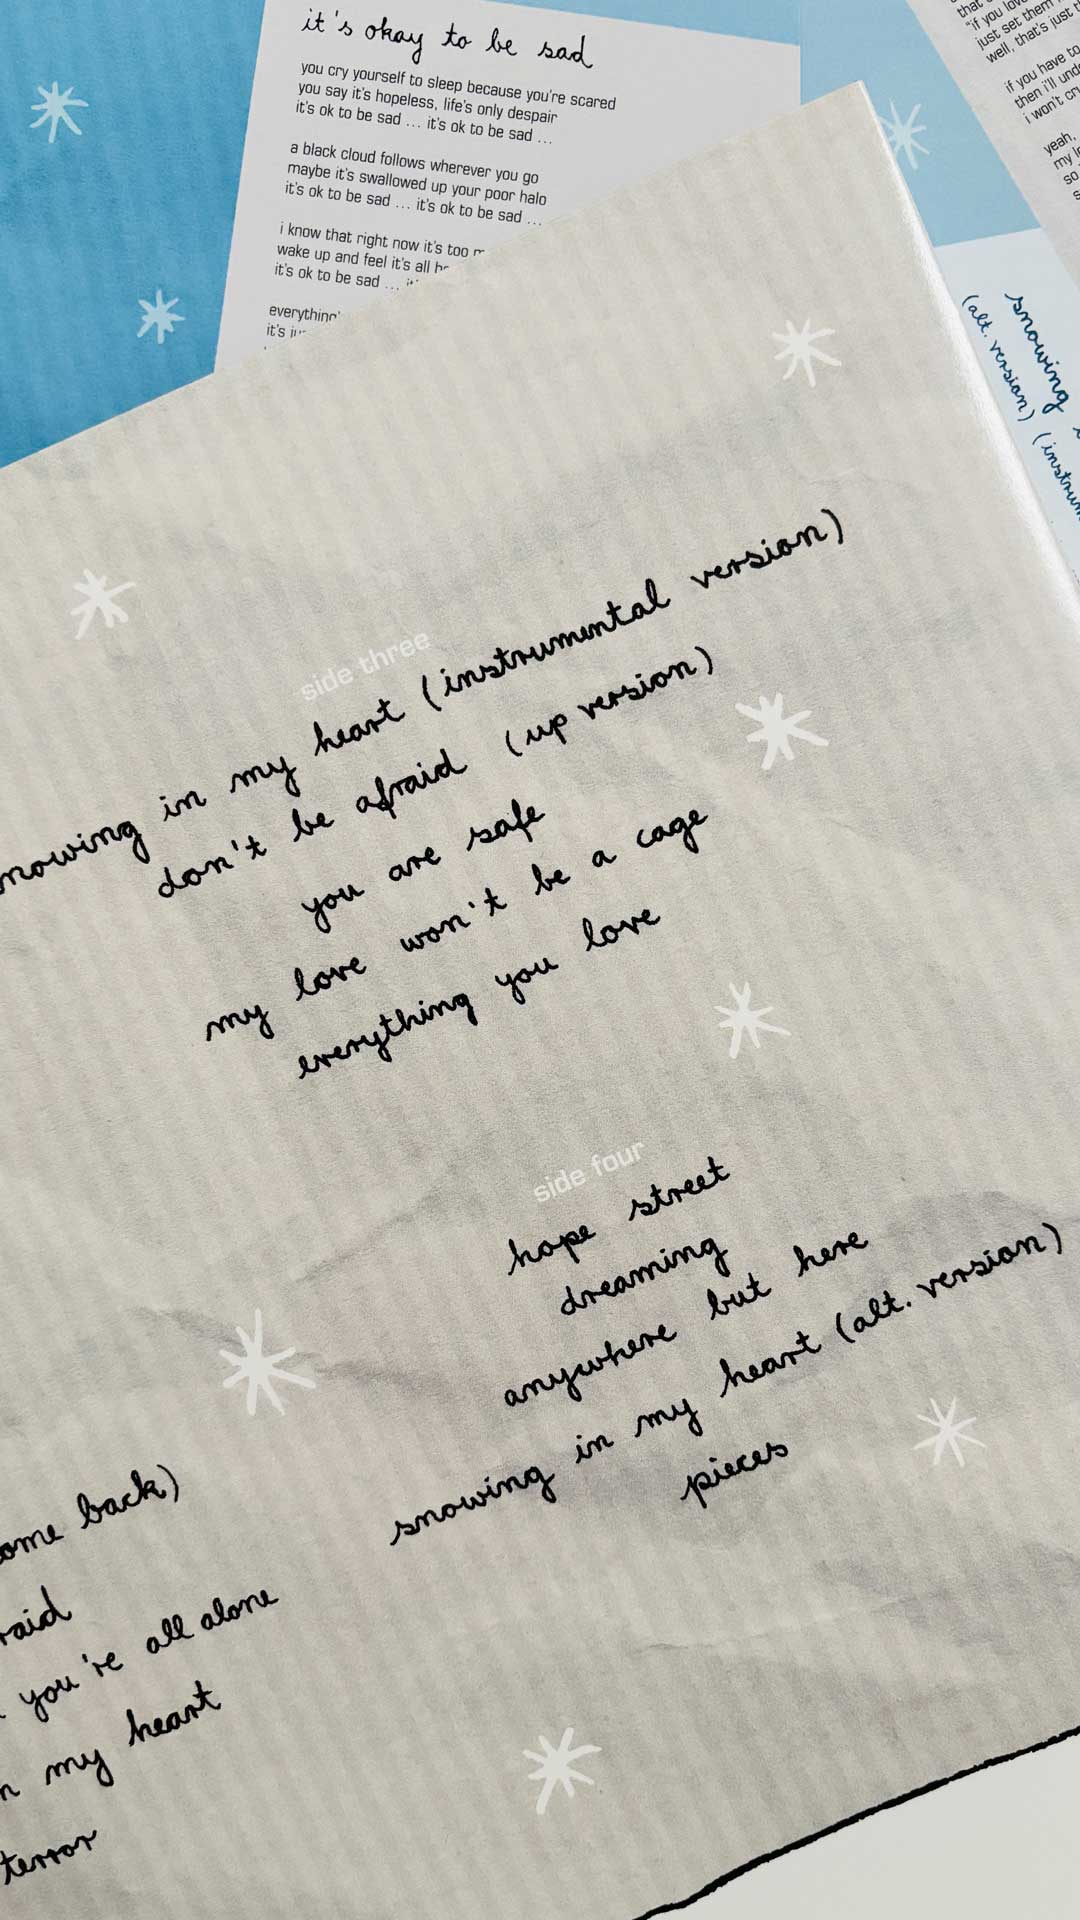 it's okay to be sad
you cry yourself to sleep because you're scared
you say it's hopeless, life's only despair
it's ok to be sad ... it's ok to be sad ...
a black cloud follows wherever you go
maybe it's swallowed up your poor halo
it's ok to be sad ... it's ok to be sad ...
i know that right now it's too
wake up and feel it's all
it's ok to be sad ...
everything'
it's
that
"if you love
just set them
well, that's just
if you have to
then i'll
i won't
yeah,
my
so
snowing
(alt. version) (instrum
side three
snowing in my heart (instrumental version)
don't be afraid (up version)
you are safe
my love won't be a cage
everything you love
side four
hope street
dreaming
anywhere but here
snowing in my heart (alt. version)
pieces
ome back)
raid
you're all alone
n my heart
terror